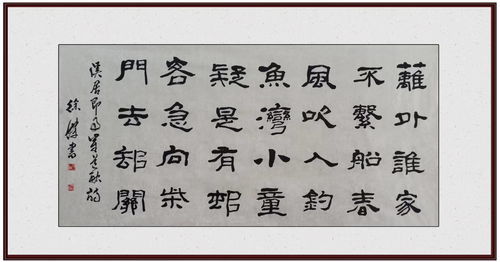 籬外誰家
不繫船春
風吹入釣
魚灣小童
疑是有邨
客急向柴
門去却關
溪居即事崔道融詩
徐書